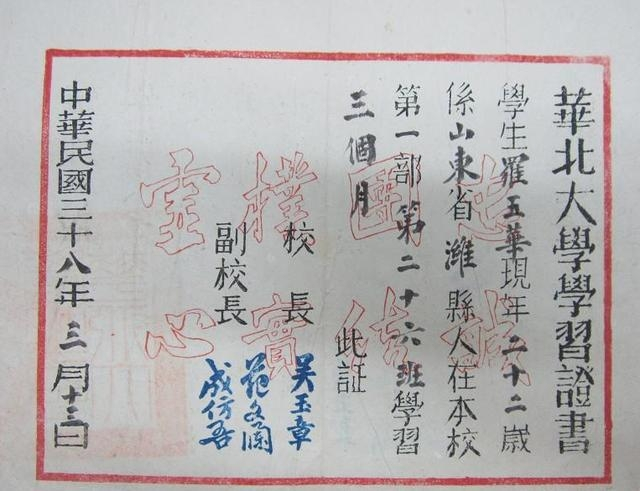 華北大學學習證書
學生羅玉華現年二十二歲
係山東省濰縣人在本校
第一部第二十六班學習
三個月
此証
校長
吳玉章
副校長
范文瀾
成仿吾
中華民國三十八年三月十三日
忠誠
團結
樸實
虛心